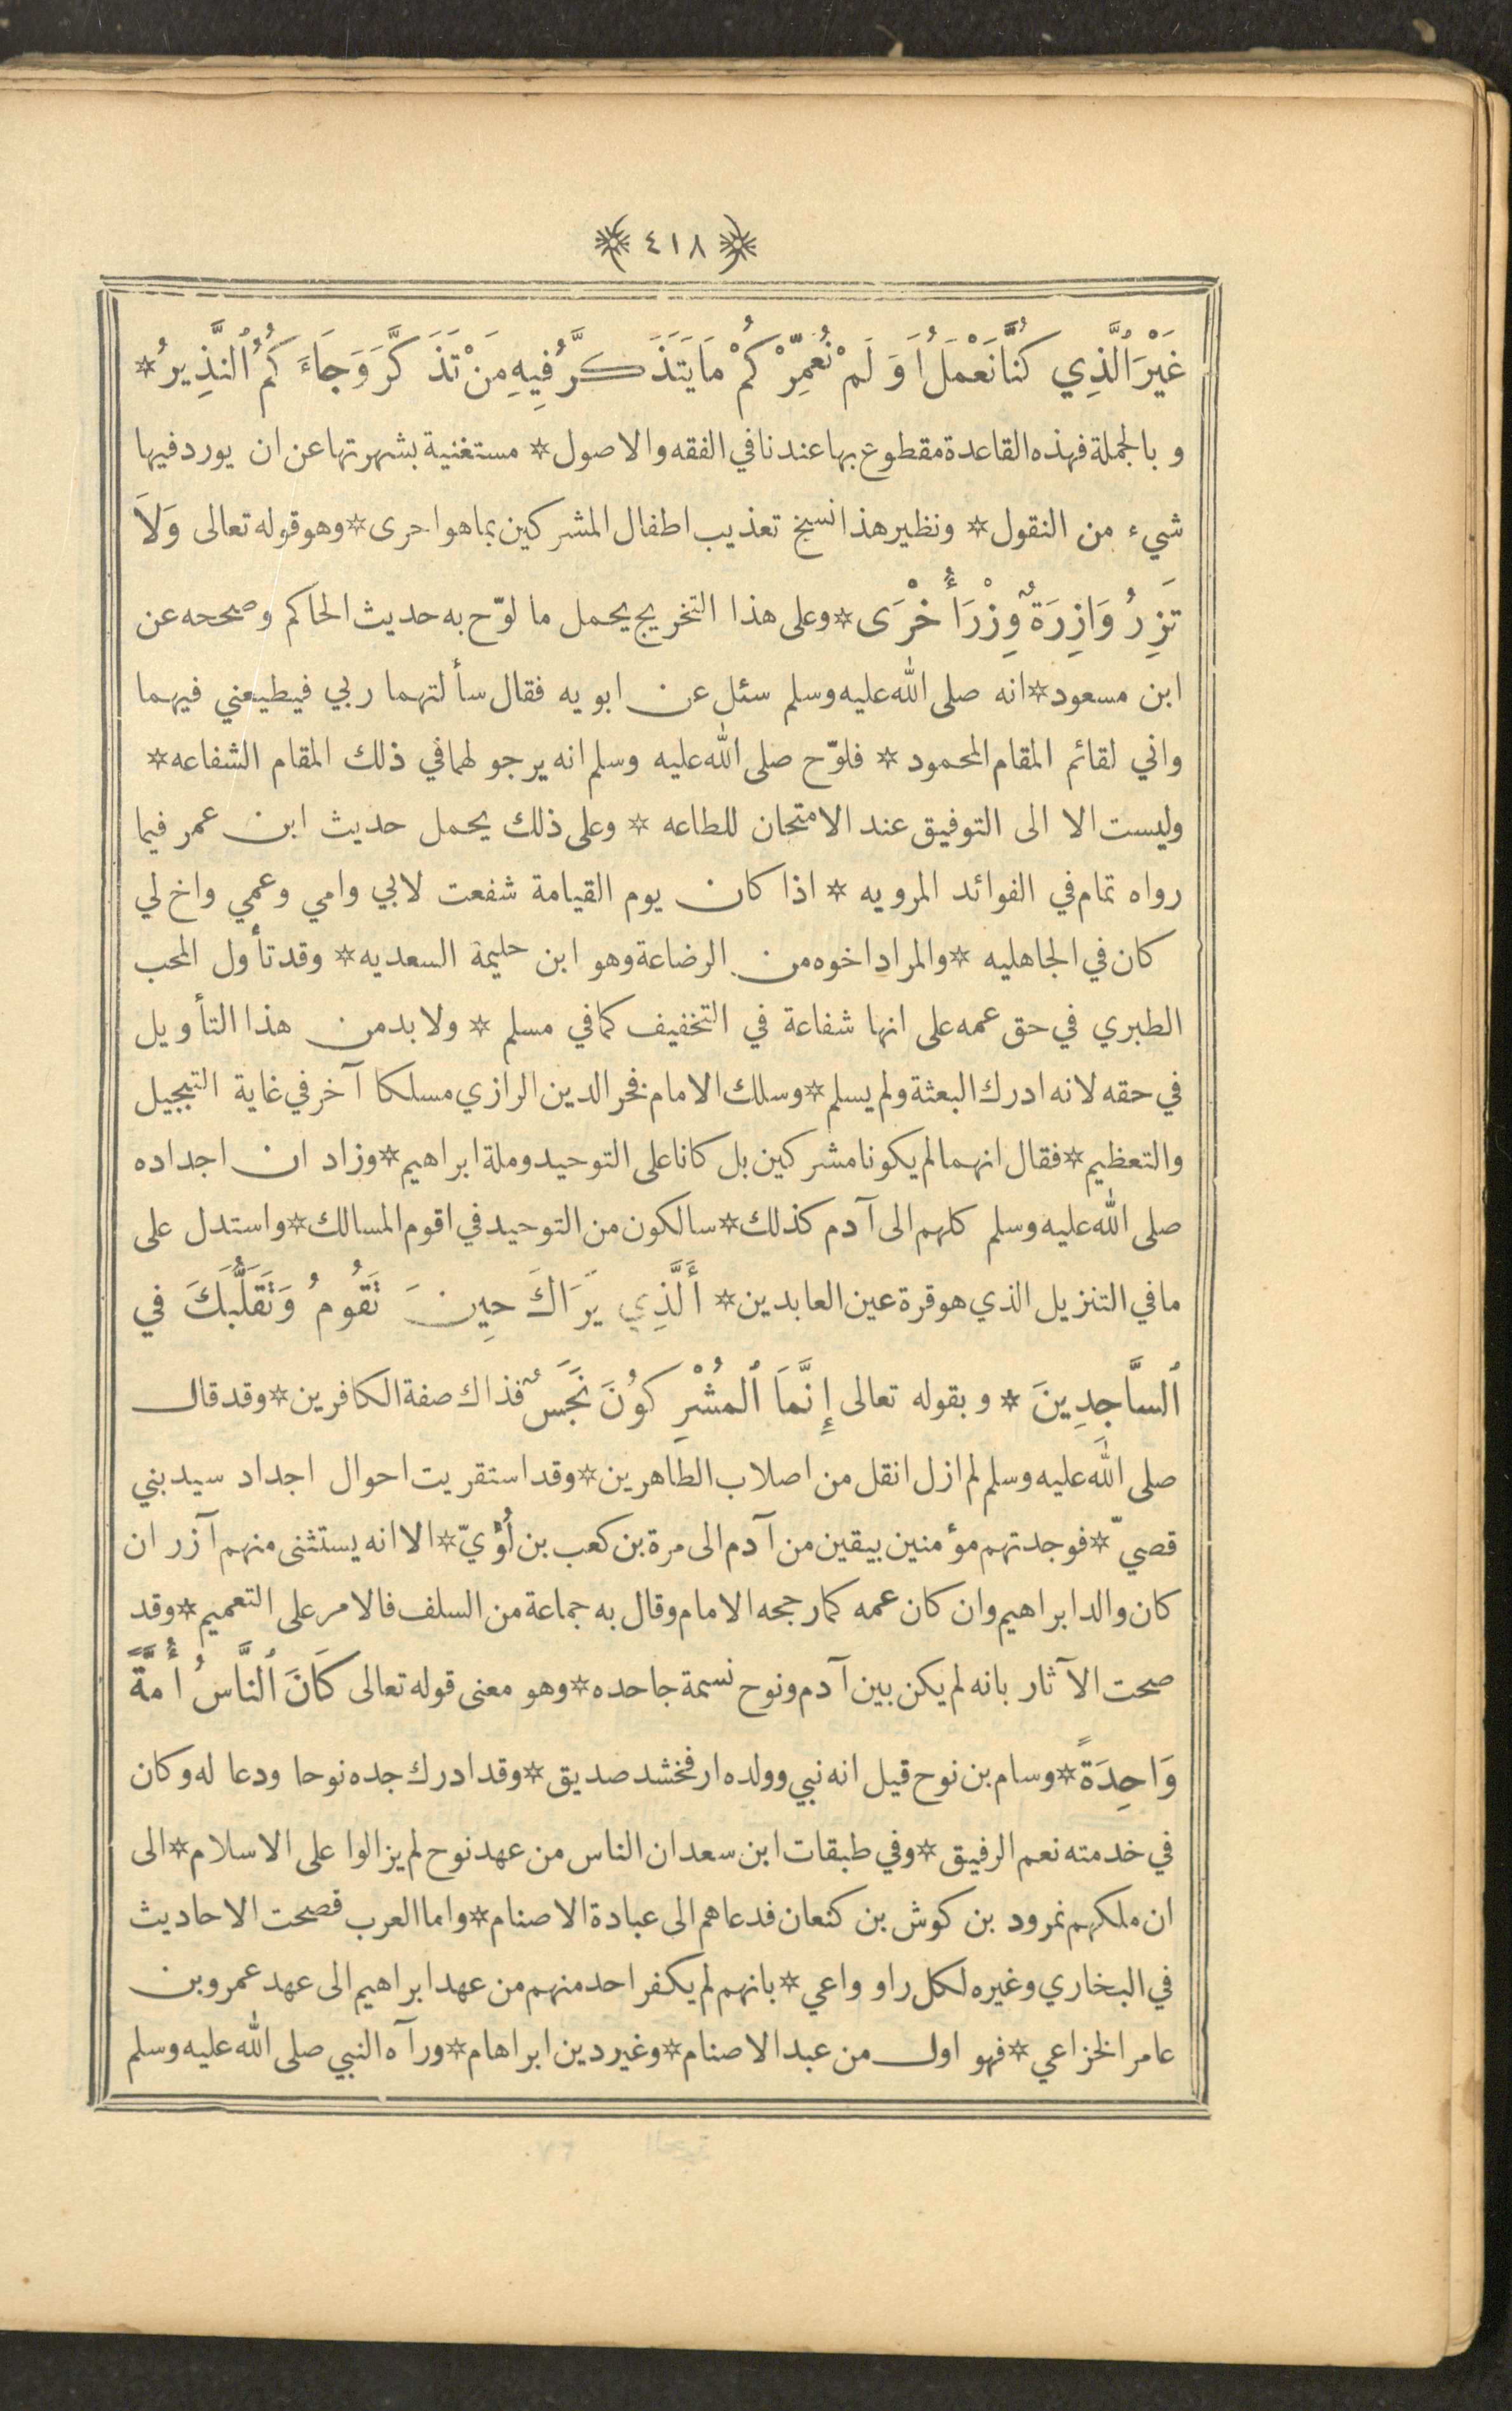 ٤١٨
غَيْرَ ٱلَّذِي كُنَّا نَعْمَلُ أَوَ لَمْ نُعَمِّرْكُمْ مَا يَتَذَكَّرُ فِيهِ مَنْ تَذَكَّرَ وَجَاءَكُمُ ٱلنَّذِيرُ *
وبالجملة فهذه القاعدة مقطوع بها عندنا في الفقه والاصول * مستغنية بشهرتها عن ان يورد فيها
شيء من النقول * ونظير هذا نسخ تعذيب اطفال المشركين بما هو احرى * وهو قوله تعالى وَلاَ
تَزِرُ وَازِرَةٌ وِزْرَ أُخْرَى * وعلى هذا التخريج يحمل ما لوّح به حديث الحاكم وصححه عن
ابن مسعود * انه صلى الله عليه وسلم سئل عن ابويه فقال سألتهما ربي فيطيعني فيهما
واني لقائم المقام المحمود * فلوّح صلى الله عليه وسلم انه يرجو لهما في ذلك المقام الشفاعه *
وليست الا الى التوفيق عند الامتحان للطاعه * وعلى ذلك يحمل حديث ابن عمر فيما
رواه تمام في الفوائد المرويه * اذا كان يوم القيامة شفعت لابي وامي وعمي واخ لي
كان في الجاهليه * والمراد اخوه من الرضاعة وهو ابن حليمة السعديه * وقد تأول المحب
الطبري في حق عمه على انها شفاعة في التخفيف كما في مسلم * ولا بد من هذا التأويل
في حقه لانه ادرك البعثة ولم يسلم * وسلك الامام فخر الدين الرازي مسلكا آخر في غاية التبجيل
والتعظيم * فقال انهما لم يكونا مشركين بل كانا على التوحيد وملة ابراهيم * وزاد ان اجداده
صلى الله عليه وسلم كلهم الى آدم كذلك * سالكون من التوحيد في اقوم المسالك * واستدل على
ما في التنزيل الذي هو قرة عين العابدين * أَلَّذِي يَرَاكَ حِينَ تَقُومُ وَتَقَلُّبَكَ في
ٱلسَّاجِدِينَ * وبقوله تعالى إِنَّمَا ٱلمُشْرِكُونَ نَجَسٌ فذاك صفة الكافرين * وقد قال
صلى الله عليه وسلم لم ازل انقل من اصلاب الطاهرين * وقد استقريت احوال اجداد سيد بني
قصيّ * فوجدتهم مؤمنين بيقين من آدم الى مرة بن كعب بن لُؤيّ * الا انه يستثنى منهم آزر ان
كان والد ابراهيم وان كان عمه كما رجحه الامام وقال به جماعة من السلف فالامر على التعميم * وقد
صحت الآثار بانه لم يكن بين آدم ونوح نسمة جاحده * وهو معنى قوله تعالى كَانَ ٱلنَّاسُ أُمَّةً
وَاحِدَةً * وسام بن نوح قيل انه نبي وولده ارفخشد صديق * وقد ادرك جده نوحا ودعا له وكان
في خدمته نعم الرفيق * وفي طبقات ابن سعد ان الناس من عهد نوح لم يزالوا على الاسلام * الى
ان ملكهم نمرود بن كوش بن كنعان فدعاهم الى عبادة الاصنام * واما العرب فصحت الاحاديث
في البخاري وغيره لكل راو واعي * بانهم لم يكفر احد منهم من عهد ابراهيم الى عهد عمرو بن
عامر الخزاعي * فهو اول من عبد الاصنام * وغير دين ابراهام * ورآه النبي صلى الله عليه وسلم